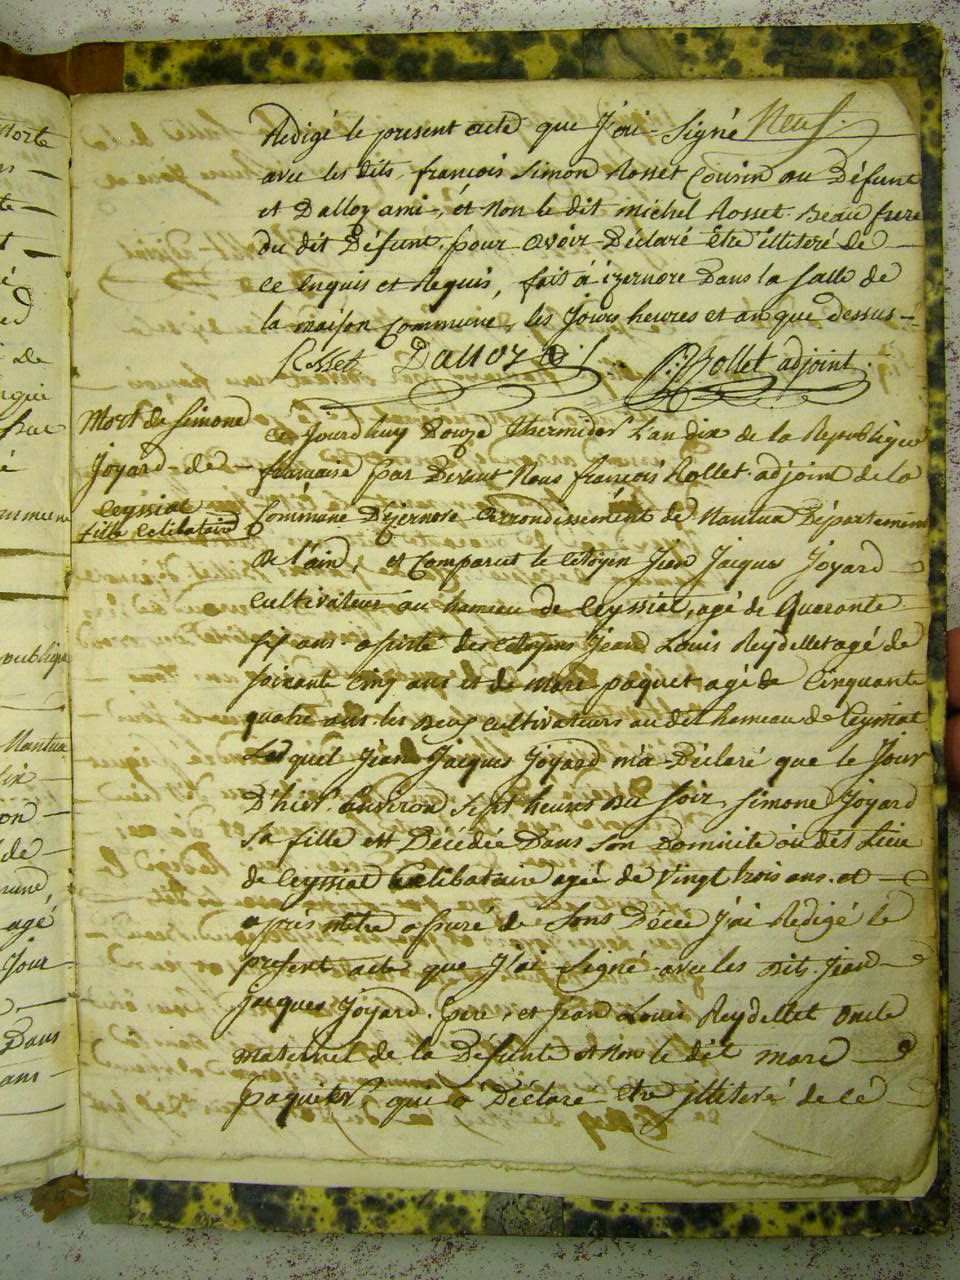 Redigé le present acte que J'ai signé Neuf.
avec les dits françois simon Rosset Cousin au Défunt
et Dalloz ami, et non le dit michel Rosset Beau frere
du dit Défunt pour avoir Déclaré être illiteré de
ce enquis et Requis, fait à izernore Dans la salle de
la maison Commune, les Jours heures et an que dessus
Rosset Dalloz f: Rollet adjoint
Mort de Simone
Joyard de
Ceyssiat
fille Celibataire
Ce Jourdhuy Douze Thermidor L'an dix de la Republique
francaise par Devant Nous françois Rollet adjoint de la
Commune Dizernore arrondissement de Nantua Département
De l'ain, et comparut le Citoyen Jean Jacques Joyard
Cultivateur au hameau de Ceyssiat, agé de Quarante
six ans assisté des Citoyens Jean Louis Reydellet agé de
soixante Cinq ans et de marc paquet agé de Cinquante
quatre ans les deux Cultivateurs au dit hameau de Ceyssiat
Lequel Jean Jacques Joyard m'a Déclaré que le Jour
D'hier Environ sept heures du soir, simone Joyard
sa fille est Décédée Dans son Domicile au dés Lieu
de Ceyssiat Celibataire agée de Vingt trois ans. et
après metre assuré de sons Décé J'ai Redigé le
present acte que J'ai signé avec les dits Jean
jacques Joyard pere, et Jean Louis Reydellet oncle
maternel de la Défunte et non le dit marc
paquet, qui a Déclaré etre illiteré de ce
Morte
de
publique
Nantua
dix
on
de
agé
Jour
Dans
ans